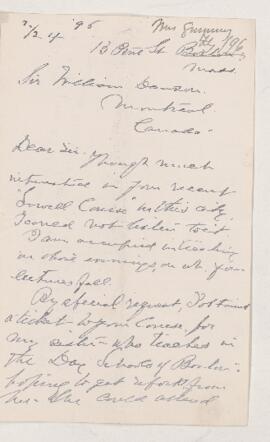 13 Pine St
Mass.
Sir William Dawson.
Montreal.
Canada
Dear Sir. Though much
interested in your recent
"Lowell Course" in this city,
I could not listen to it.
I am occupied in teaching
on those evenings, on wh. your
lectures fall.
By special request, I obtained
a ticket to your Course, for
my sister - who teaches in
the Day Schools of Boston -
hoping to get information from
her - She could attend